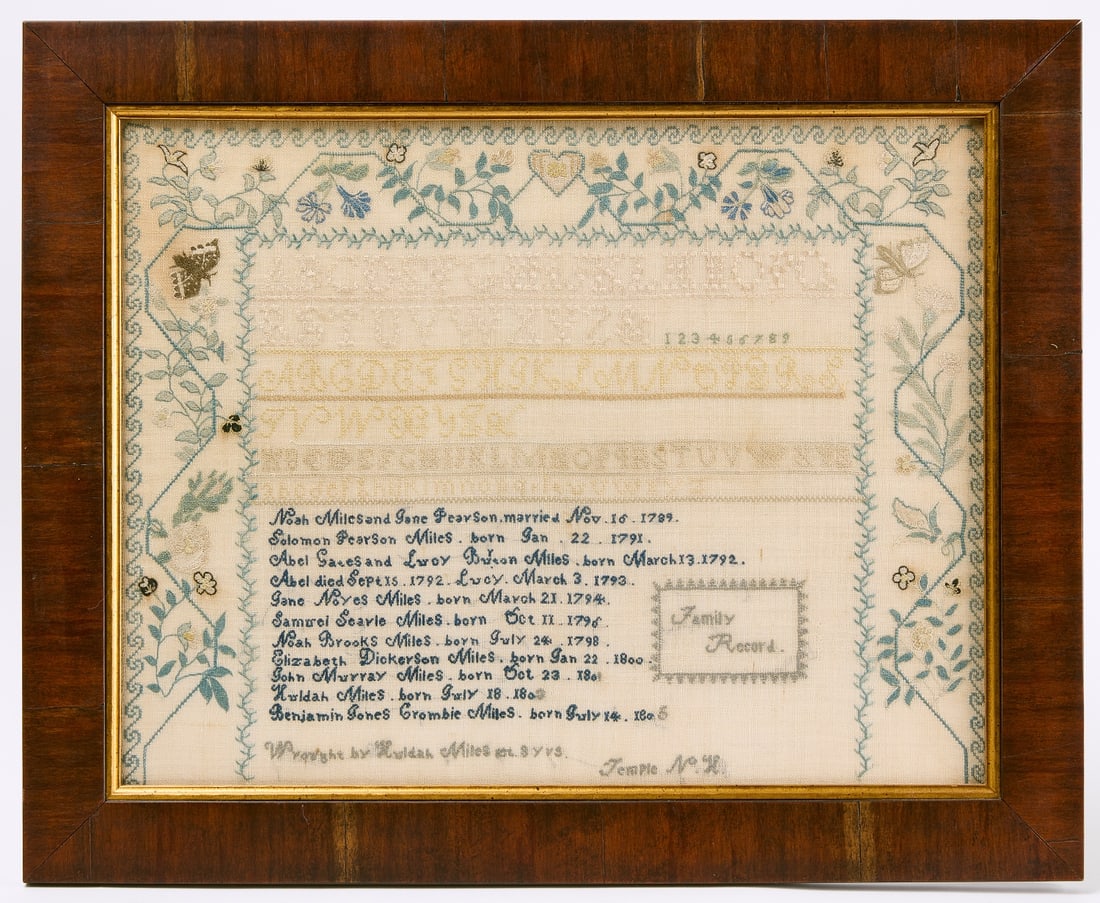 ABCDEFGHIJKLMNOPQ
RSTUVWXYZ&
123456789
ABCDEFGHIJKLMNOPQRS
TUVWXYZ
ABCDEFGHIJKLMNOPQRSTUVWXYZ
Noah Miles and Jane Pearson. married Nov. 16. 1789.
Solomon Pearson Miles. born Jan. 22. 1791.
Abel Gates and Lucy Miles. born March 13. 1792.
Abel died Sept 15. 1792. Lucy. March 3. 1793.
Jane Noyes Miles. born March 21. 1794.
Samuel Searle Miles. born Oct 11. 1796.
Noah Brooks Miles. born July 24. 1798.
Elizabeth Dickerson Miles. born Jan 22. 1800.
John Murray Miles. born Oct 23. 180
Huldah Miles. born July 18. 180
Benjamin Jones Crombie Miles. born July 14. 1805
Family
Record.
Wrought by Huldah Miles æt. 9 yrs.
Temple N. H.